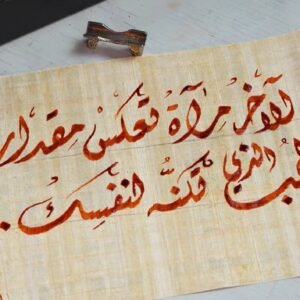 الآخر مرآة تعكس مقدار
الحب الذي تكنّه لنفسك.